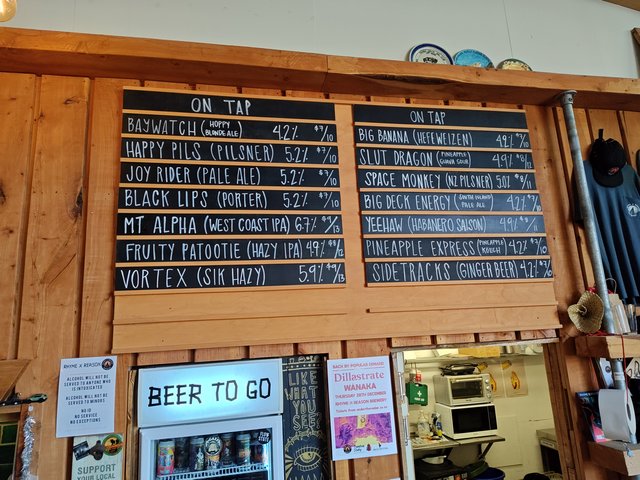 ON TAP
BAYWATCH (HOPPY BLONDE ALE) 4.2% $7/10
HAPPY PILS (PILSNER) 5.2% $7/10
JOY RIDER (PALE ALE) 5.2% $7/10
BLACK LIPS (PORTER) 5.2% $7/10
MT ALPHA (WEST COAST IPA) 6.7% $9/13
FRUITY PATOOTIE (HAZY IPA) 4.9% $8/12
VORTEX (SIK HAZY) 5.9% $9/13
ON TAP
BIG BANANA (HEFEWEIZEN) 4.2% $7/10
SLUT DRAGON (PINEAPPLE GUAVA SOUR) 4.9% $8/12
SPACE MONKEY (NZ PILSNER) 5.0% $8/11
BIG DECK ENERGY (SOUTH ISLAND PALE ALE) 4.2%
YEEHAW (HABANERO SAISON) 4.9%
PINEAPPLE EXPRESS (PINEAPPLE KOLSCH) 4.2% $7/10
SIDETRACKS (GINGER BEER) 4.2% $7/10
RHYME X REASON
ALCOHOL WILL NOT BE
SERVED TO ANYONE WHO
IS INTOXICATED
ALCOHOL WILL NOT BE
SERVED TO MINORS
NO ID
NO SERVICE
NO EXCEPTIONS
SUPPORT
YOUR LOCAL
BEER TO GO
LIKE
WHAT
YOU
SEE
BACK BY POPULAR DEMAND
Dillastrate
WANAKA
THURSDAY 28TH DECEMBER
RHYME X REASON BREWERY